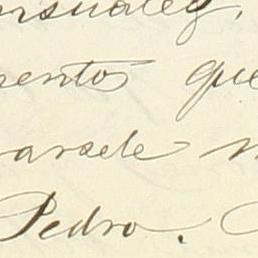 nsuales,
mentos que
arsele
Pedro.